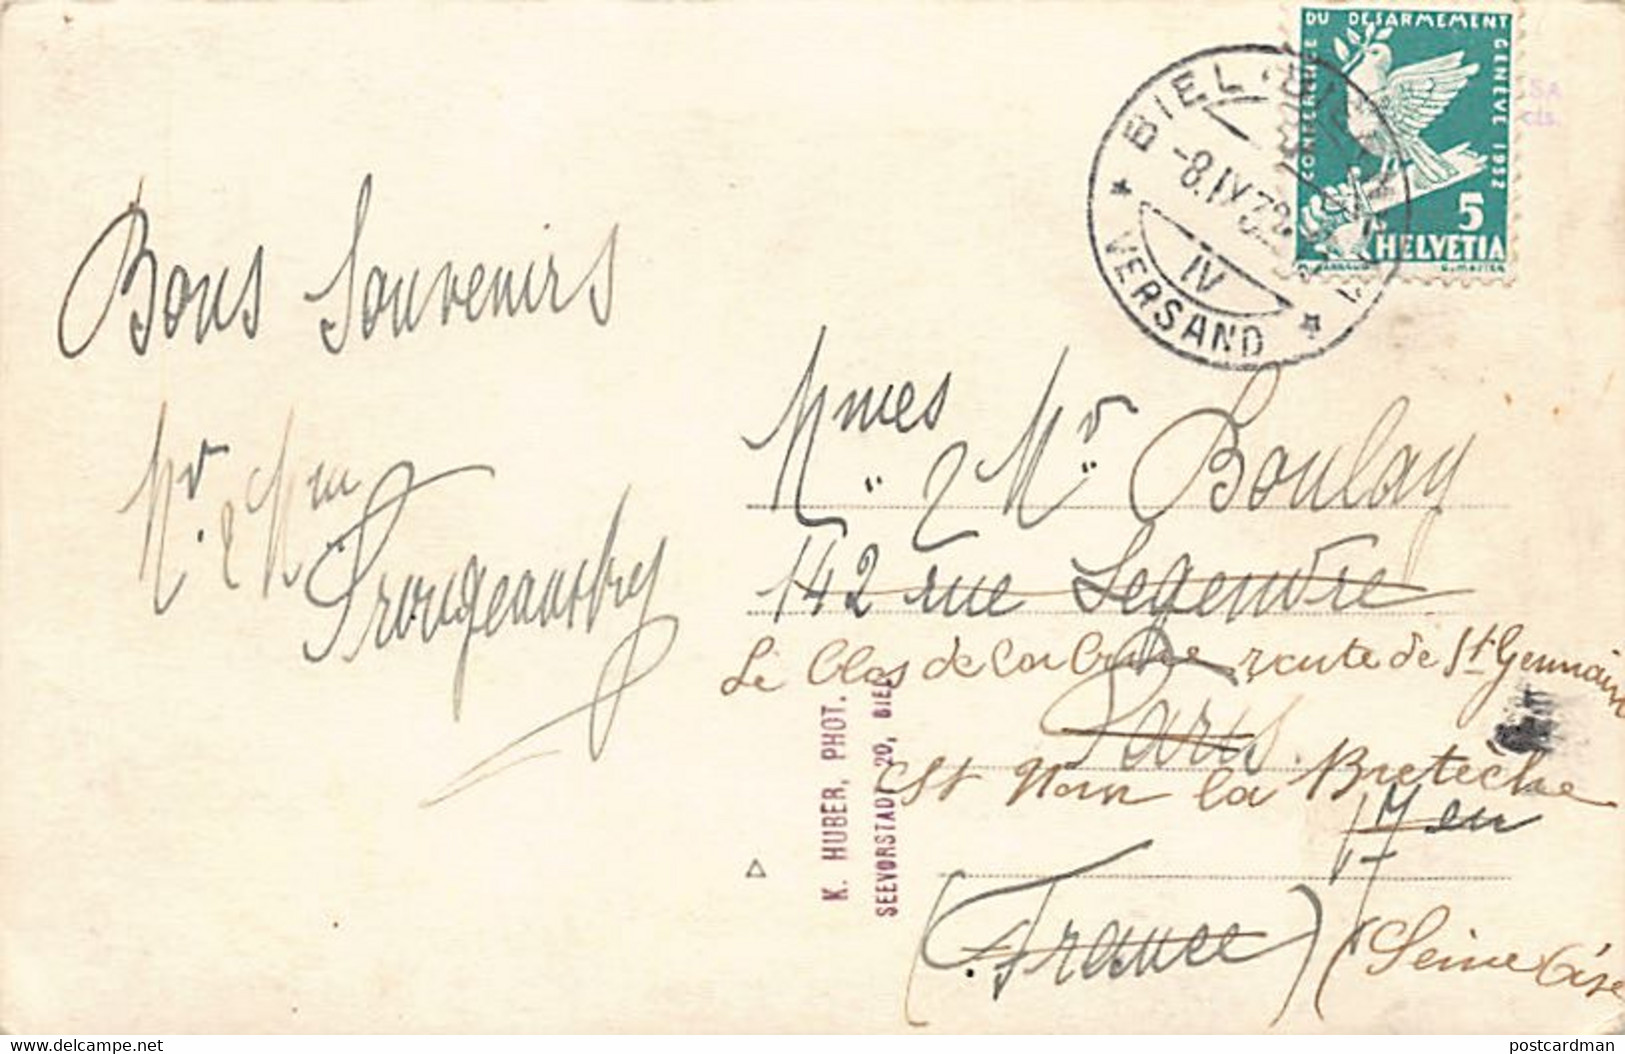 CONFERENCE DU DESARMEMENT GENEVE 1932
5
HELVETIA
BIEL · BIENNE
-8.IX.32
IV
VERSAND
Bons Souvenirs
Mr. & Mme
Mmes & Mr. Boulay
142 rue Legendre
Le Clos de route de St Germain
Paris.
St Nom la Bretèche
17 en
(France) (Seine & Oise
K. HUBER, PHOT.
SEEVORSTADT 20, BIEL
delcampe.net
postcardman